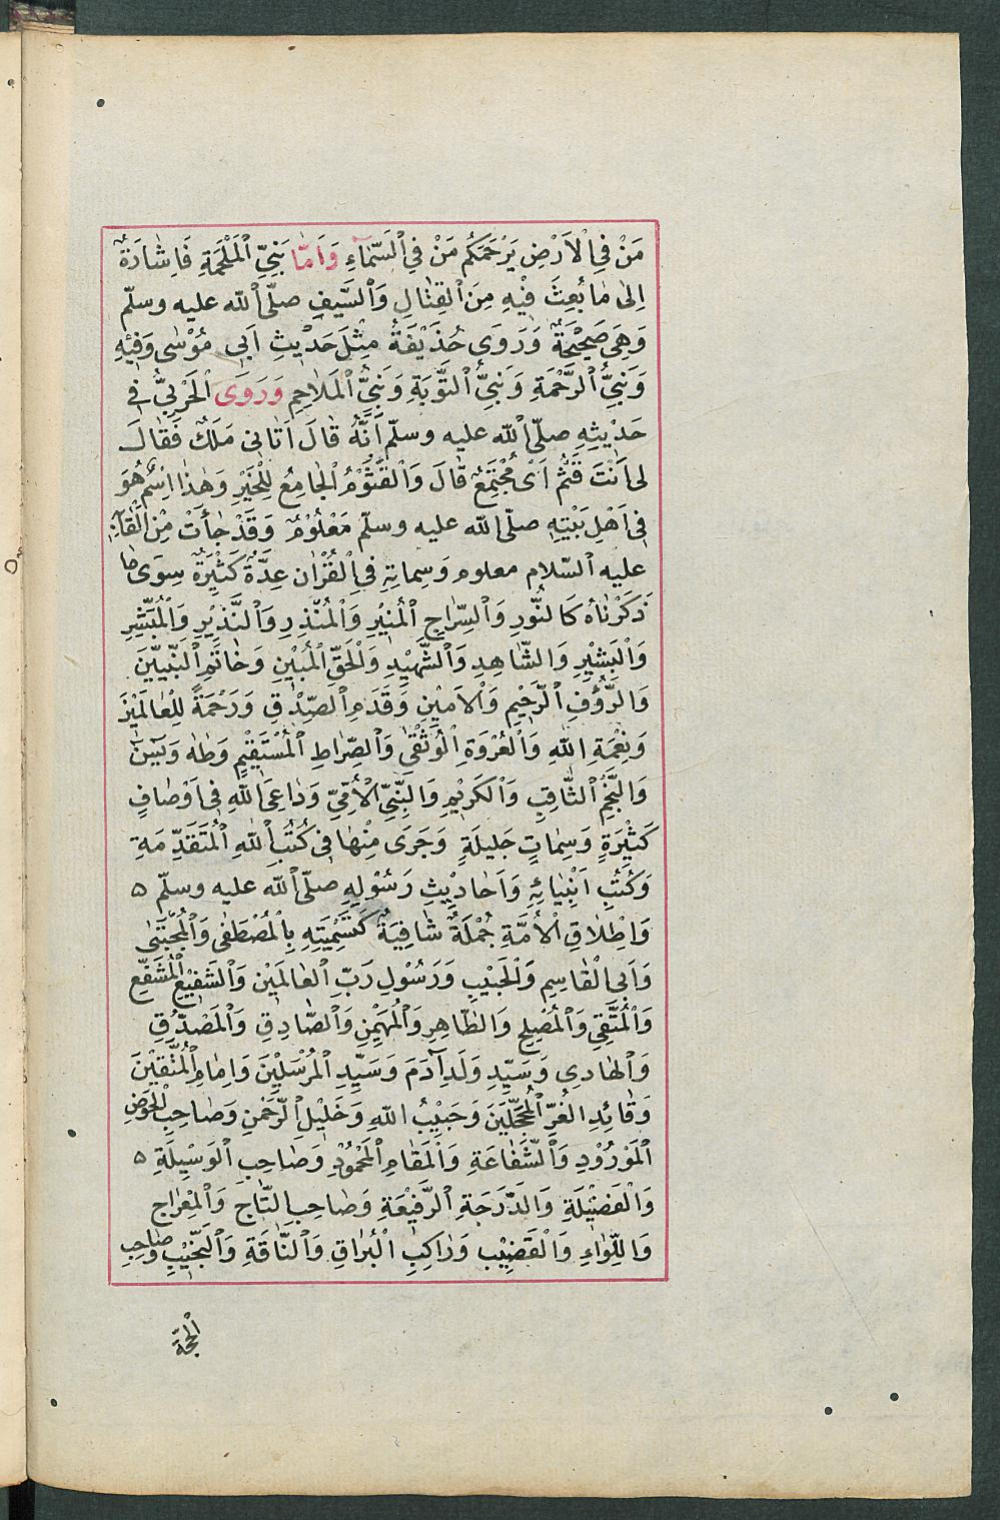 مَنْ فِي الْاَرْضِ يَرْحَمْكُم مَنْ فِي السَّمَاءِ وَاَمَّا نَبِيُّ الْمَلْحَمَةِ فَاِشَارَةٌ
اِلٰى مَا بُعِثَ فِيْهِ مِنَ الْقِتَالِ وَالسَّيْفِ صلّى الله عليه وسلّم
وَهِىَ صَحِيْحَةٌ وَرَوَى حُذَيْفَةُ مِثْلَ حَدِيْثِ اَبِى مُوْسٰى وَفِيْهِ
وَنَبِيُّ الرَّحْمَةِ وَنَبِيُّ التَّوْبَةِ وَنَبِيُّ الْمَلَاحِمِ وَرَوَى الْحَرْبِيُّ فِى
حَدِيْثِهِ صلّى الله عليه وسلّم اَنَّهُ قَالَ اَتَانِى مَلَكٌ فَقَالَ
لِى اَنْتَ قُثَمُ اَىْ مُجْتَمِعٌ قَالَ وَالْقَثُوْمُ الْجَامِعُ لِلْخَيْرِ وَهٰذَا اِسْمٌ هُوَ
فِى اَهْلِ بَيْتِهِ صلّى الله عليه وسلّم مَعْلُوْمٌ وَقَدْ جَاءَتْ مِنْ اَلْقَابِهِ
عليه السّلام معلوم وَسِمَاتِهِ فِى الْقُرْاٰن عِدَّةٌ كَثِيْرَةٌ سِوٰى مَا
ذَكَرْنَاهُ كَالنُّوْرِ وَالسِّرَاجِ الْمُنِيْرِ وَالْمُنْذِرِ وَالنَّذِيْرِ وَالْمُبَشِّرِ
وَالْبَشِيْرِ وَالشَّاهِدِ وَالشَّهِيْدِ وَالْحَقِّ الْمُبِيْنِ وَخَاتَمِ النَّبِيِّيْنَ
وَالرَّؤُفِ الرَّحِيْمِ وَالْاَمِيْنِ وَقَدَمِ الصِّدْقِ وَرَحْمَةً لِلْعَالَمِيْنَ
وَنِعْمَةِ اللهِ وَالْعُرْوَةِ الْوُثْقٰى وَالصِّرَاطِ الْمُسْتَقِيْمِ وَطٰهٰ وَيٰسٓ
وَالنَّجْمُ الثَّاقِبِ وَالْكَرِيْمِ وَالنَّبِىِّ الْاُمِّىِّ وَدَاعِىَ اللهِ فِى اَوْصَافٍ
كَثِيْرَةٍ وَسِمَاتٍ جَلِيلَةٍ وَجَرَى مِنْهَا فِى كُتُبِ اللهِ الْمُتَقَدِّمَةِ
وَكُتُبِ اَنْبِيَائِهِ وَاَحَادِيْثِ رَسُوْلِهِ صلّى الله عليه وسلّم ٥
وَاِطْلَاقِ الْاُمَّةِ جُمْلَةٌ شَافِيَةٌ كَتَسْمِيَتِهِ بِالْمُصْطَفٰى وَالْمُجْتَبٰى
وَاَبِى الْقَاسِمِ وَالْحَبِيْبِ وَرَسُوْلِ رَبِّ الْعَالَمِيْن وَالشَّفِيْعِ الْمُشَفَّعِ
وَالْمُتَّقِىْ وَالْمُصْلِحِ وَالطَّاهِرِ وَالْمُهَيْمِنِ وَالصَّادِقِ وَالْمُصَدِّقِ
وَالْهَادِى وَسَيِّدِ وَلَدِ اٰدَمَ وَسَيِّدِ الْمُرْسَلِيْنَ وَاِمَامِ الْمُتَّقِيْنَ
وَقَائِدِ الْغُرِّ الْمُحَجَّلِيْنَ وَحَبِيْبُ اللهِ وَخَلِيْلِ الرَّحْمٰنِ وَصَاحِبِ الْحَوْضِ
الْمَوْرُوْدِ وَالشَّفَاعَةِ وَالْمَقَامِ الْمَحْمُوْدِ وَصَاحِبِ الْوَسِيْلَةِ ٥
وَالْفَضِيْلَةِ وَالدَّرَجَةِ الرَّفِيْعَةِ وَصَاحِبِ التَّاجِ وَالْمِعْرَاجِ
وَاللِّوَاءِ وَالْقَضِيْبِ وَرَاكِبِ الْبُرَاقِ وَالنَّاقَةِ وَالنَّجِيْبِ وَصَاحِبِ
الْحُجَّةِ